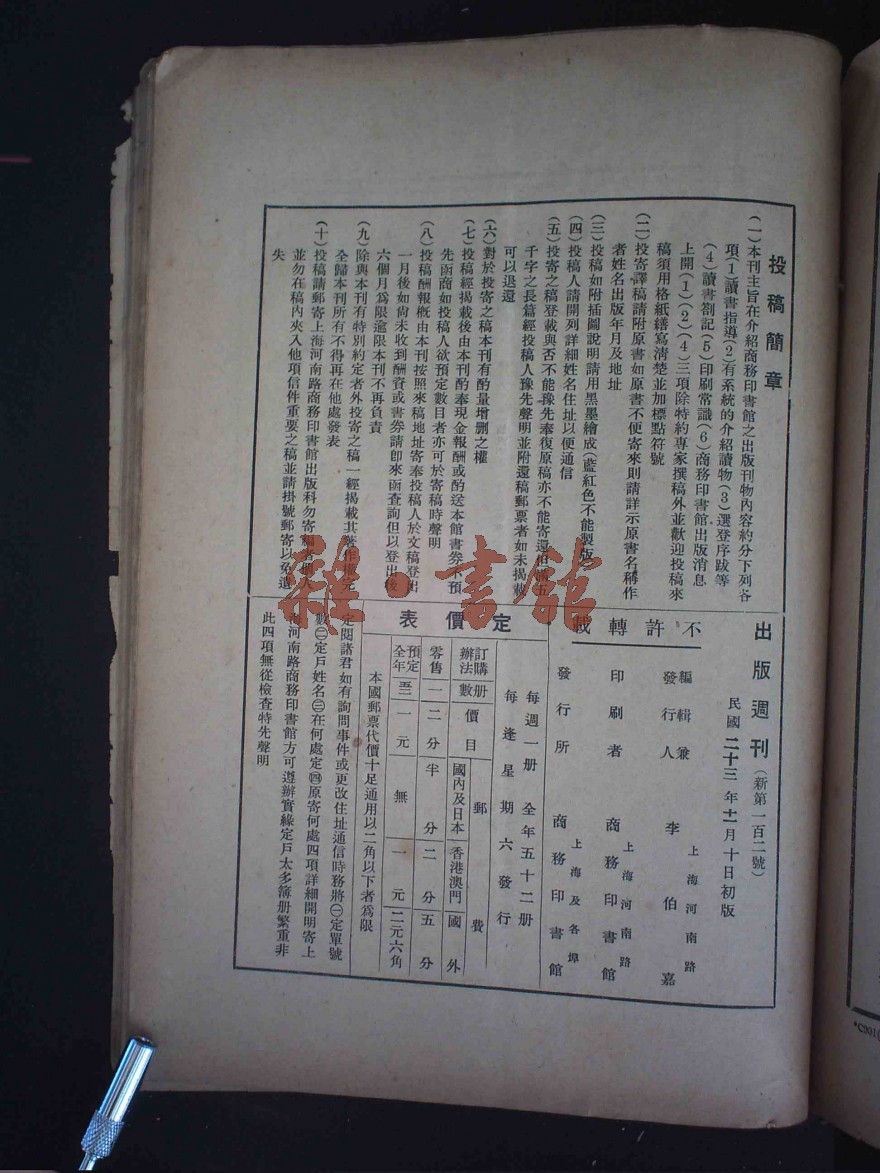 投稿簡章
(一)本刊主旨在介紹商務印書館之出版刊物內容約分下列各
項(1)讀書指導(2)有系統的介紹讀物(3)選登序跋等
(4)讀書劄記(5)印刷常識(6)商務印書館出版消息
上開(1)(2)(4)三項除特約專家撰稿外並歡迎投稿來
稿須用格紙繕寫清楚並加標點符號
(二)投寄譯稿請附原書如原書不便寄來則請詳示原書名稱作
者姓名出版年月及地址
(三)投稿如附插圖說明請用黑墨繪成(藍紅色不能製版)
(四)投稿人請開列詳細姓名住址以便通信
(五)投寄之稿登載與否不能豫先奉復原稿亦不能寄還但滿五
千字之長篇經投稿人豫先聲明並附還稿郵票者如未揭載
可以退還
(六)對於投寄之稿本刊有酌量增删之權
(七)投稿經揭載後由本刊酌奉現金報酬或酌送本館書券不預
先函商如投稿人欲預定數目者亦可於寄稿時聲明
(八)投稿酬報概由本刊按照來稿地址寄奉投稿人於文稿登出
一月後如尙未收到酬資或書券請卽來函查詢但以登出後
六個月爲限逾限本刊不再負責
(九)除與本刊有特別約定者外投寄之稿一經揭載其著作權完
全歸本刊所有不得再在他處發表
(十)投稿請郵寄上海河南路商務印書館出版科勿寄編者個人
並勿在稿內夾入他項信件重要之稿並請掛號郵寄以免遺
失
出版週刊(新第一百二號)
民國二十三年十一月十日初版
不許轉載
編輯兼
發行人 李伯嘉
上海河南路
印刷者 商務印書館
上海河南路
發行所 商務印書館
上海及各埠
定價表
每週一册 全年五十二册
每逢星期六發行
訂購辦法 册數 價目 郵費
國內及日本 香港澳門 國外
零售 一 二分 半分 二分 五分
預定全年 五二 一元 無 一元 二元六角
本國郵票代價十足通用以二角以下者爲限
定閱諸君如有詢問事件或更改住址通信時務將㊀定單號
數㊁定戶姓名㊂在何處定㊃原寄何處四項詳細開明寄上
海河南路商務印書館方可遵辦實緣定戶太多簿册繁重非
此四項無從檢查特先聲明
雜·書舘